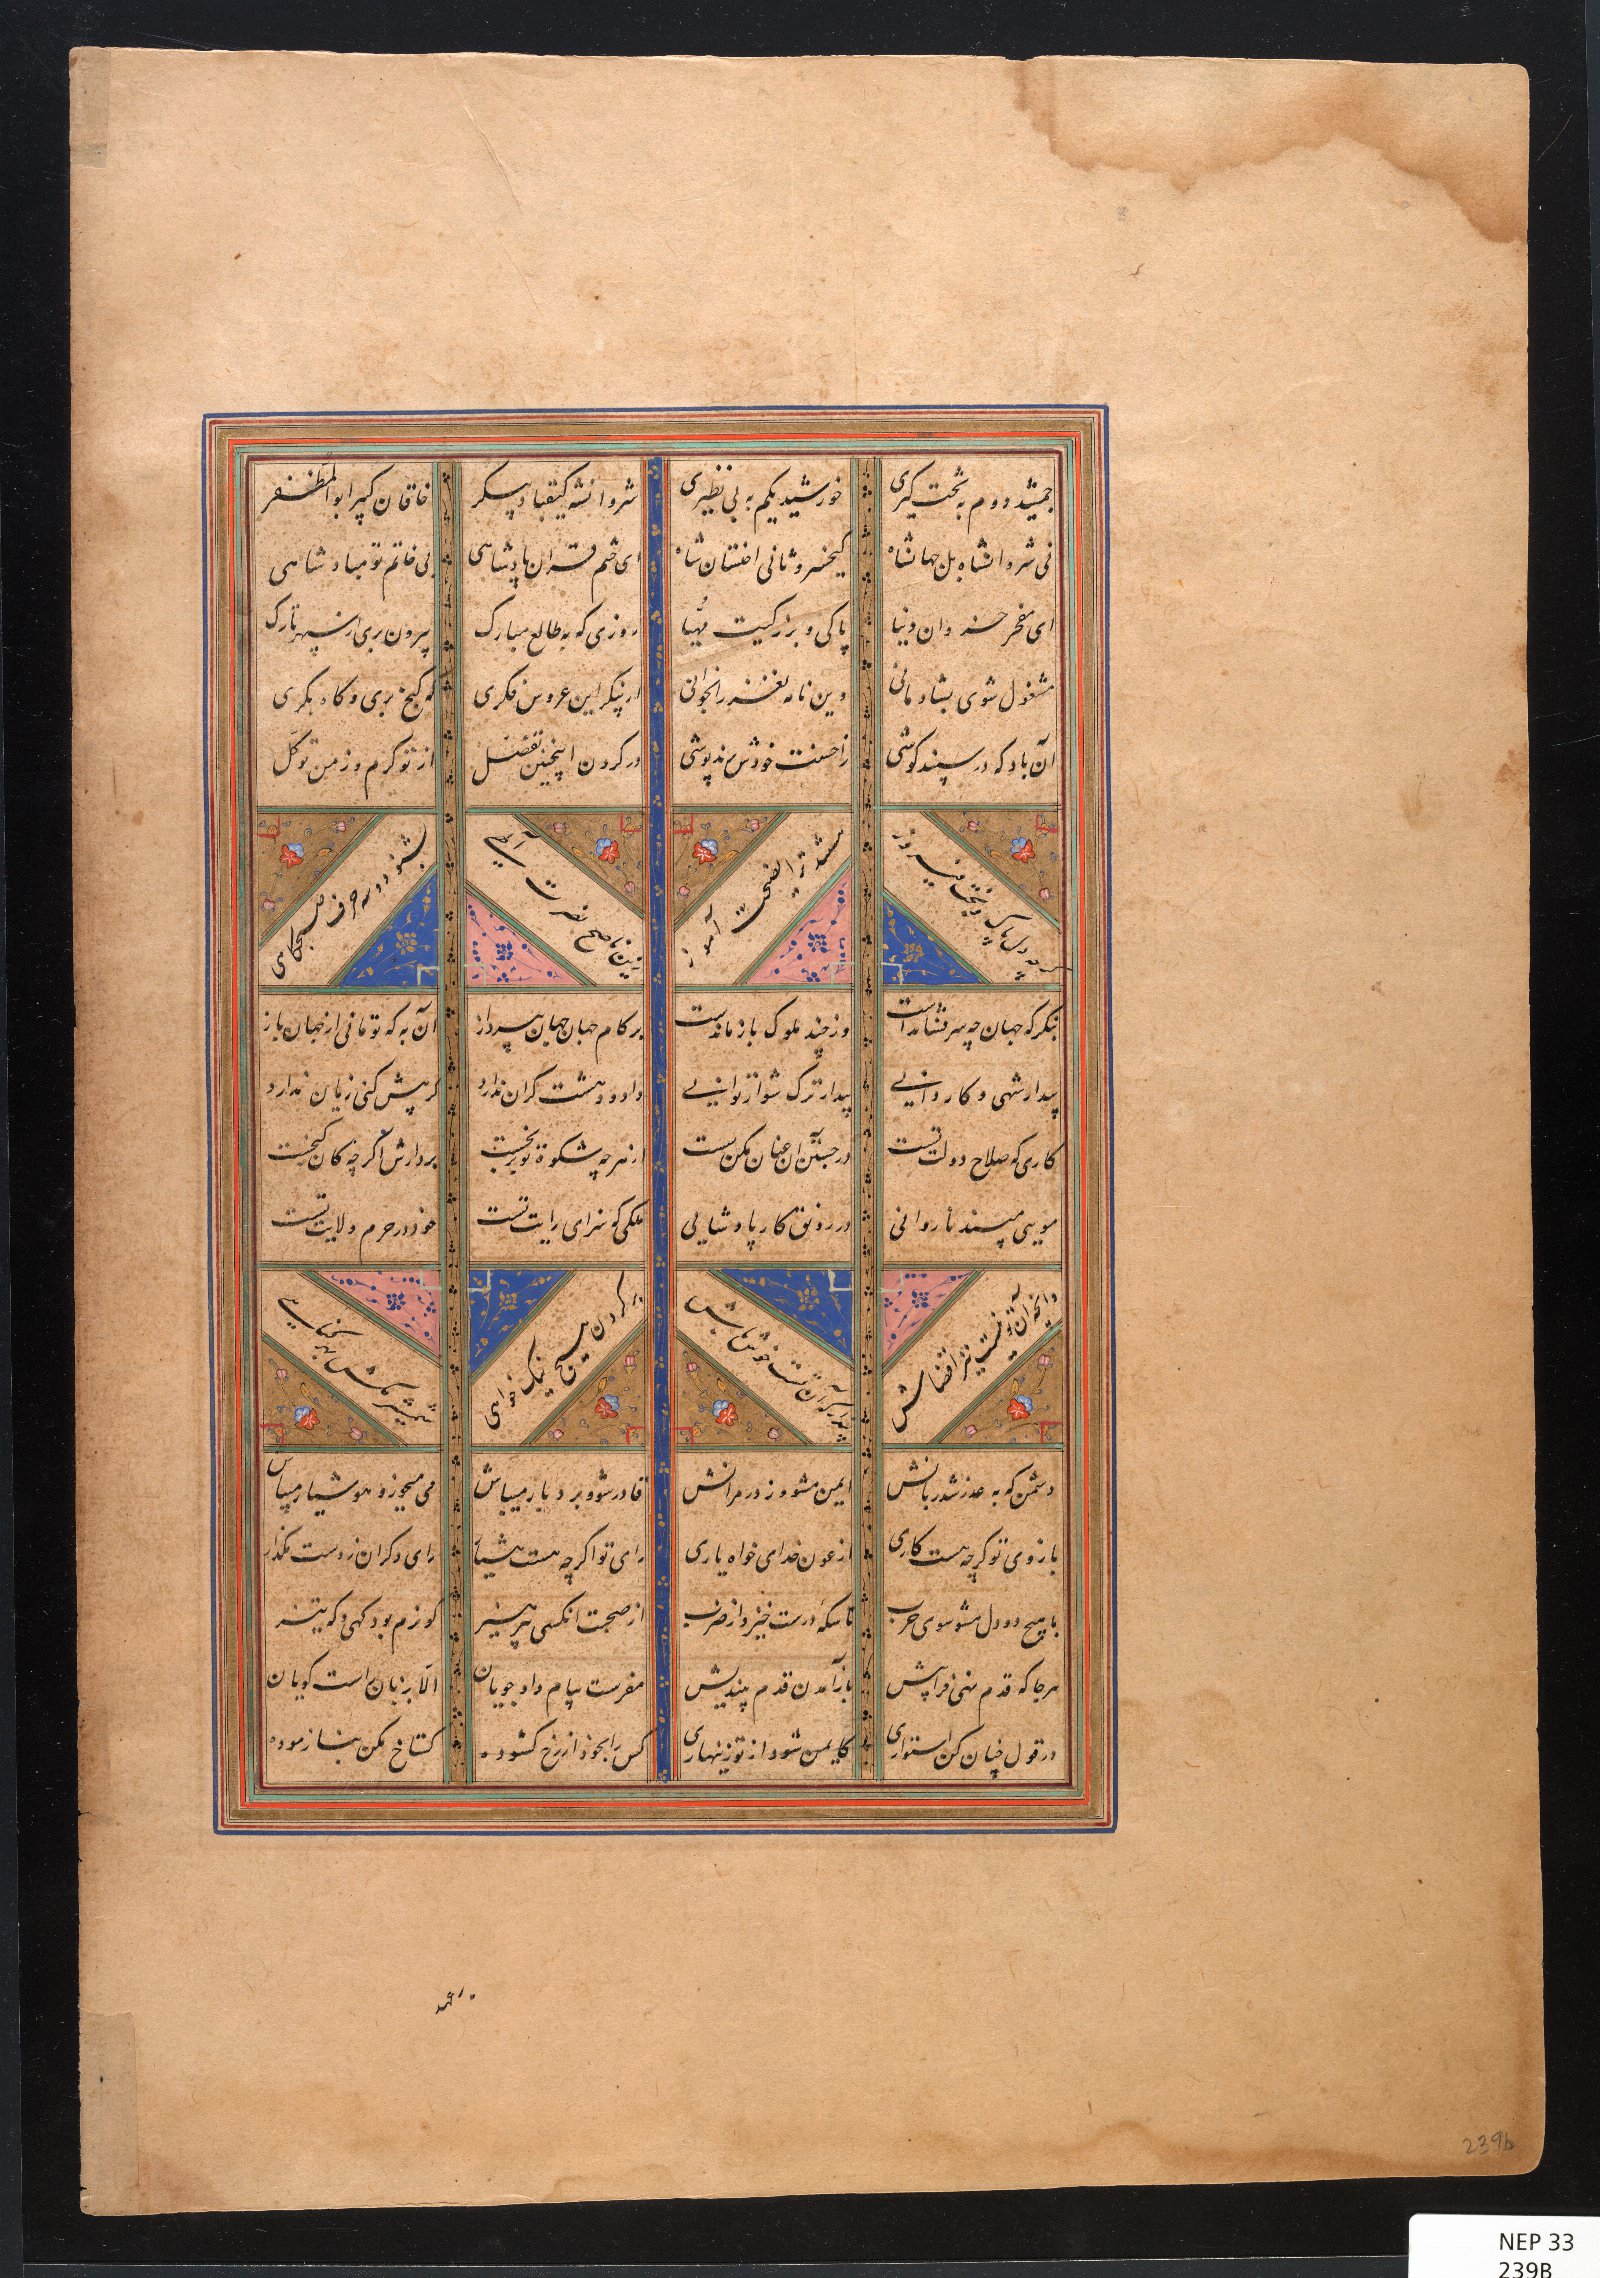 جمشید دوم به تخت گیری خورشید یکم به بی نظیری شروانشه کیقباد پیکر خاقان کبیر ابوالمظفر
نی شروانشاه بل جهانشاه کیخسرو ثانی اختسان شاه ای ختم قران پادشاهی بی خاتم تو مباد شاهی
ای مفخر خسروان دنیا پاکی و بزرگیت مهیا روزی که به طالع مبارک بیرون بری از سپهر تارک
مشغول شوی بشادمانی وین نامه نغز را بخوانی از پیکر این عروس فکری که گنج بری و گاه بکری
آن باد که در پسند کوشی ز احسنت خودش پرند پوشی در کردن اینچنین تفضّل از تو کرم و ز من توکّل
گرچه دل پاک و بخت فیروز هستند ترا نصیحت آموز زین ناصح نصرت آلهی بشنو دو سه حرف صبحگاهی
بنگر که جهان چه سر فشاندست وز چند ملوک بازماندست بر کام جهان جهان بپرداز آن به که تو مانی از جهان باز
بیدار شهی و کاردانیی بیدارترک شو ار توانیی داد و دهشت کران ندارد گر بیش کنی زیان ندارد
کاری که صلاح دولت تست در جستن آن عنان مکن سست از هرچه شکوه تو برنجست بردارش اگرچه کان گنجست
مویی مپسند ناروائی در رونق کار پادشائی ملکی که سزای رایت تست خود در حرم ولایت تست
وانچه آن تو نیست نیز پندار که آن تست خوش باش گردن هیچ نیک خواهی شمشیر مکش به بی گناهی
دشمن که به عذر شد زبانش ایمن مشو وز در برانش قادر شو و بردبار میباش می میخور و هوشیار میباش
بازوی تو گرچه هست کاری از عون خدای خواه یاری رای تو اگرچه هست هشیار رای دگران ز دست مگذار
با هیچ دودل مشو سوی حرب تا سکه درست خیزد از ضرب از صحبت آنکسی بپرهیز کو نرم بود گهی و گه تیز
هرجا که قدم نهی فراپیش باز آمدن قدم بیندیش مفرست پیام دادجویان الّا بزبان راست گویان
در قول چنان کن استواری کایمن شود از تو زینهاری کس را بخود از رخ گشوده گستاخ مکن نیازموده
بر عهد
239b
NEP 33
239B